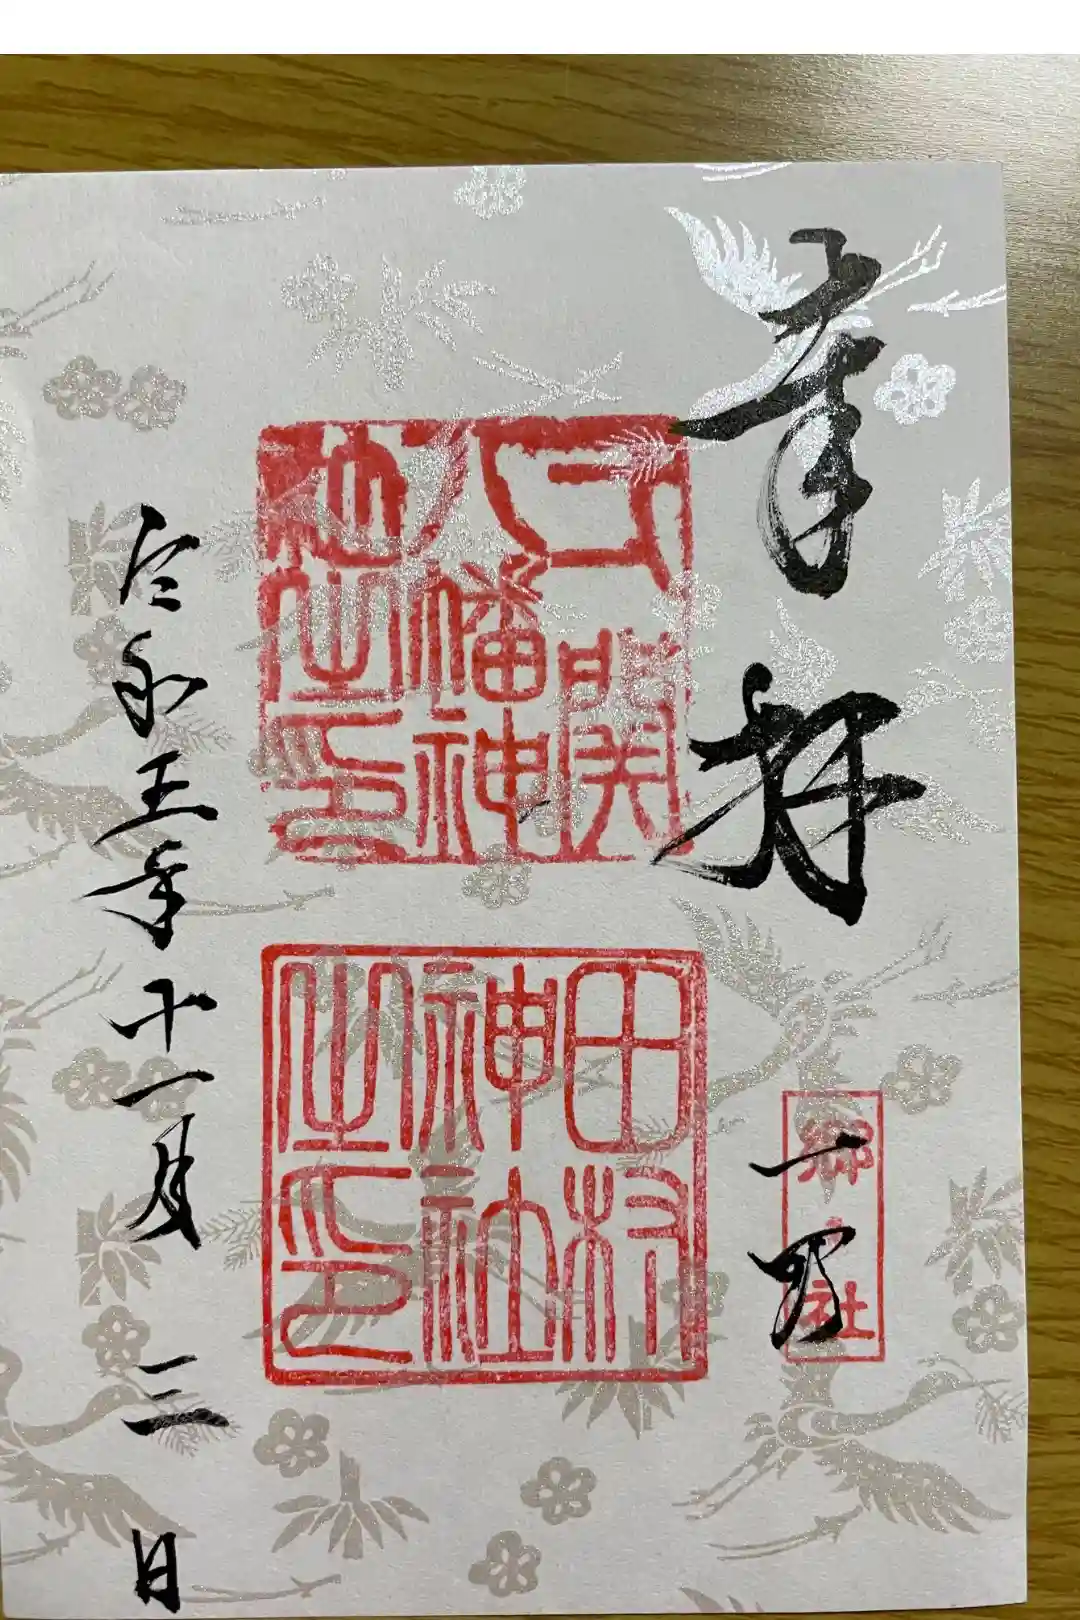 奉拝
一関
郷社
一関
八幡神
社之印
田村
神社
之印
令和五年十一月三日